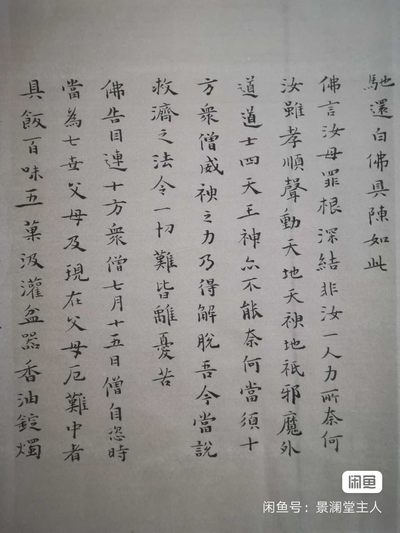 馳還白佛具陳如此
佛言汝母罪根深結非汝一人力所奈何
汝雖孝順聲動天地天神地祇邪魔外
道道士四天王神亦不能奈何當須十
方衆僧威神之力乃得解脫吾今當說
救濟之法令一切難皆離憂苦
佛告目連十方衆僧七月十五日僧自恣時
當為七世父母及現在父母厄難中者
具飯百味五菓汲灌盆器香油錠燭
闲鱼
闲鱼号：景澜堂主人